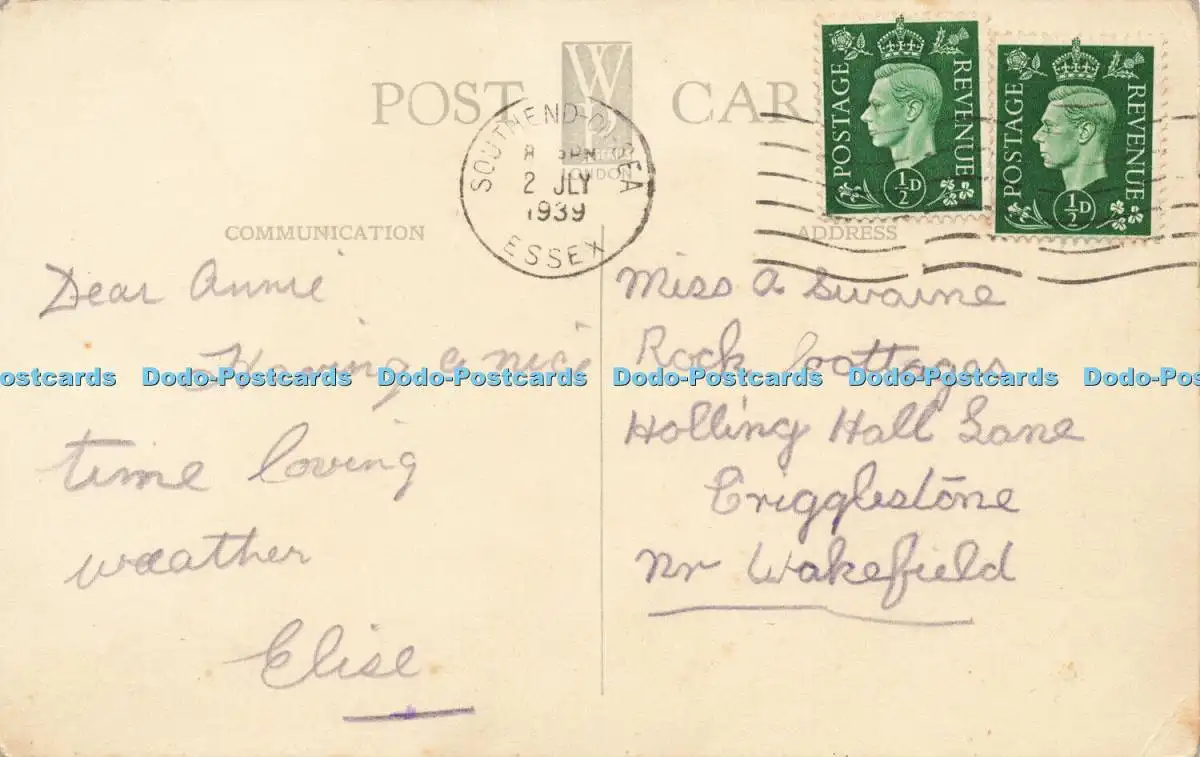 POST CARD
LONDON
SOUTHEND-ON-SEA
2 JLY
1939
ESSEX
POSTAGE REVENUE
½D
POSTAGE REVENUE
½D
COMMUNICATION
Dear Annie
Having a nice
time loving
weather
Elise
ADDRESS
Miss A Swaine
Rock Cottages
Holling Hall Lane
Crigglestone
Nr Wakefield
ostcards Dodo-Postcards Dodo-Postcards Dodo-Postcards Dodo-Postcards Dodo-Post